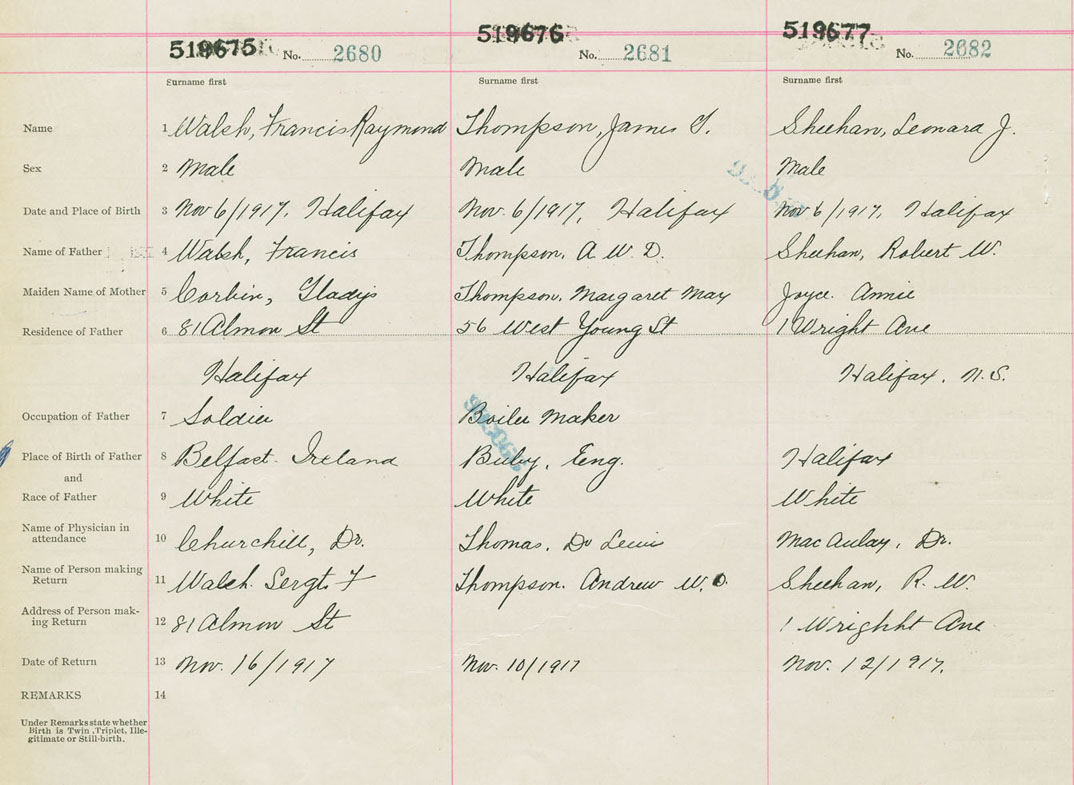 519675 No. 2680 519676 No. 2681 519677 No. 2682
Surname first Surname first Surname first
Name 1 Walsh, Francis Raymond Thompson, James T. Sheehan, Leonard J.
Sex 2 Male Male Male
Date and Place of Birth 3 Nov 6/1917, Halifax Nov. 6/1917, Halifax Nov 6/1917, Halifax
Name of Father 4 Walsh, Francis Thompson, A. W. D. Sheehan, Robert W.
Maiden Name of Mother 5 Corbin, Gladys Thompson, Margaret May Joyce. Annie
Residence of Father 6 81 Almon St 56 West Young St 1 Wright Ave
Halifax Halifax Halifax, N.S.
Occupation of Father 7 Soldier Boiler Maker
Place of Birth of Father 8 Belfast. Ireland , Eng. Halifax
and
Race of Father 9 White White White
Name of Physician in
attendance 10 Churchill, Dr. Thomas, Dr Lewis MacAulay, Dr.
Name of Person making
Return 11 Walsh. Sergt. F Thompson. Andrew W. D. Sheehan, R. W.
Address of Person mak-
ing Return 12 81 Almon St 1 Wrighht Ave
Date of Return 13 Nov. 16/1917 Nov. 10/1917 Nov. 12/1917.
REMARKS 14
Under Remarks state whether
Birth is Twin, Triplet, Ille-
gitimate or Still-birth.